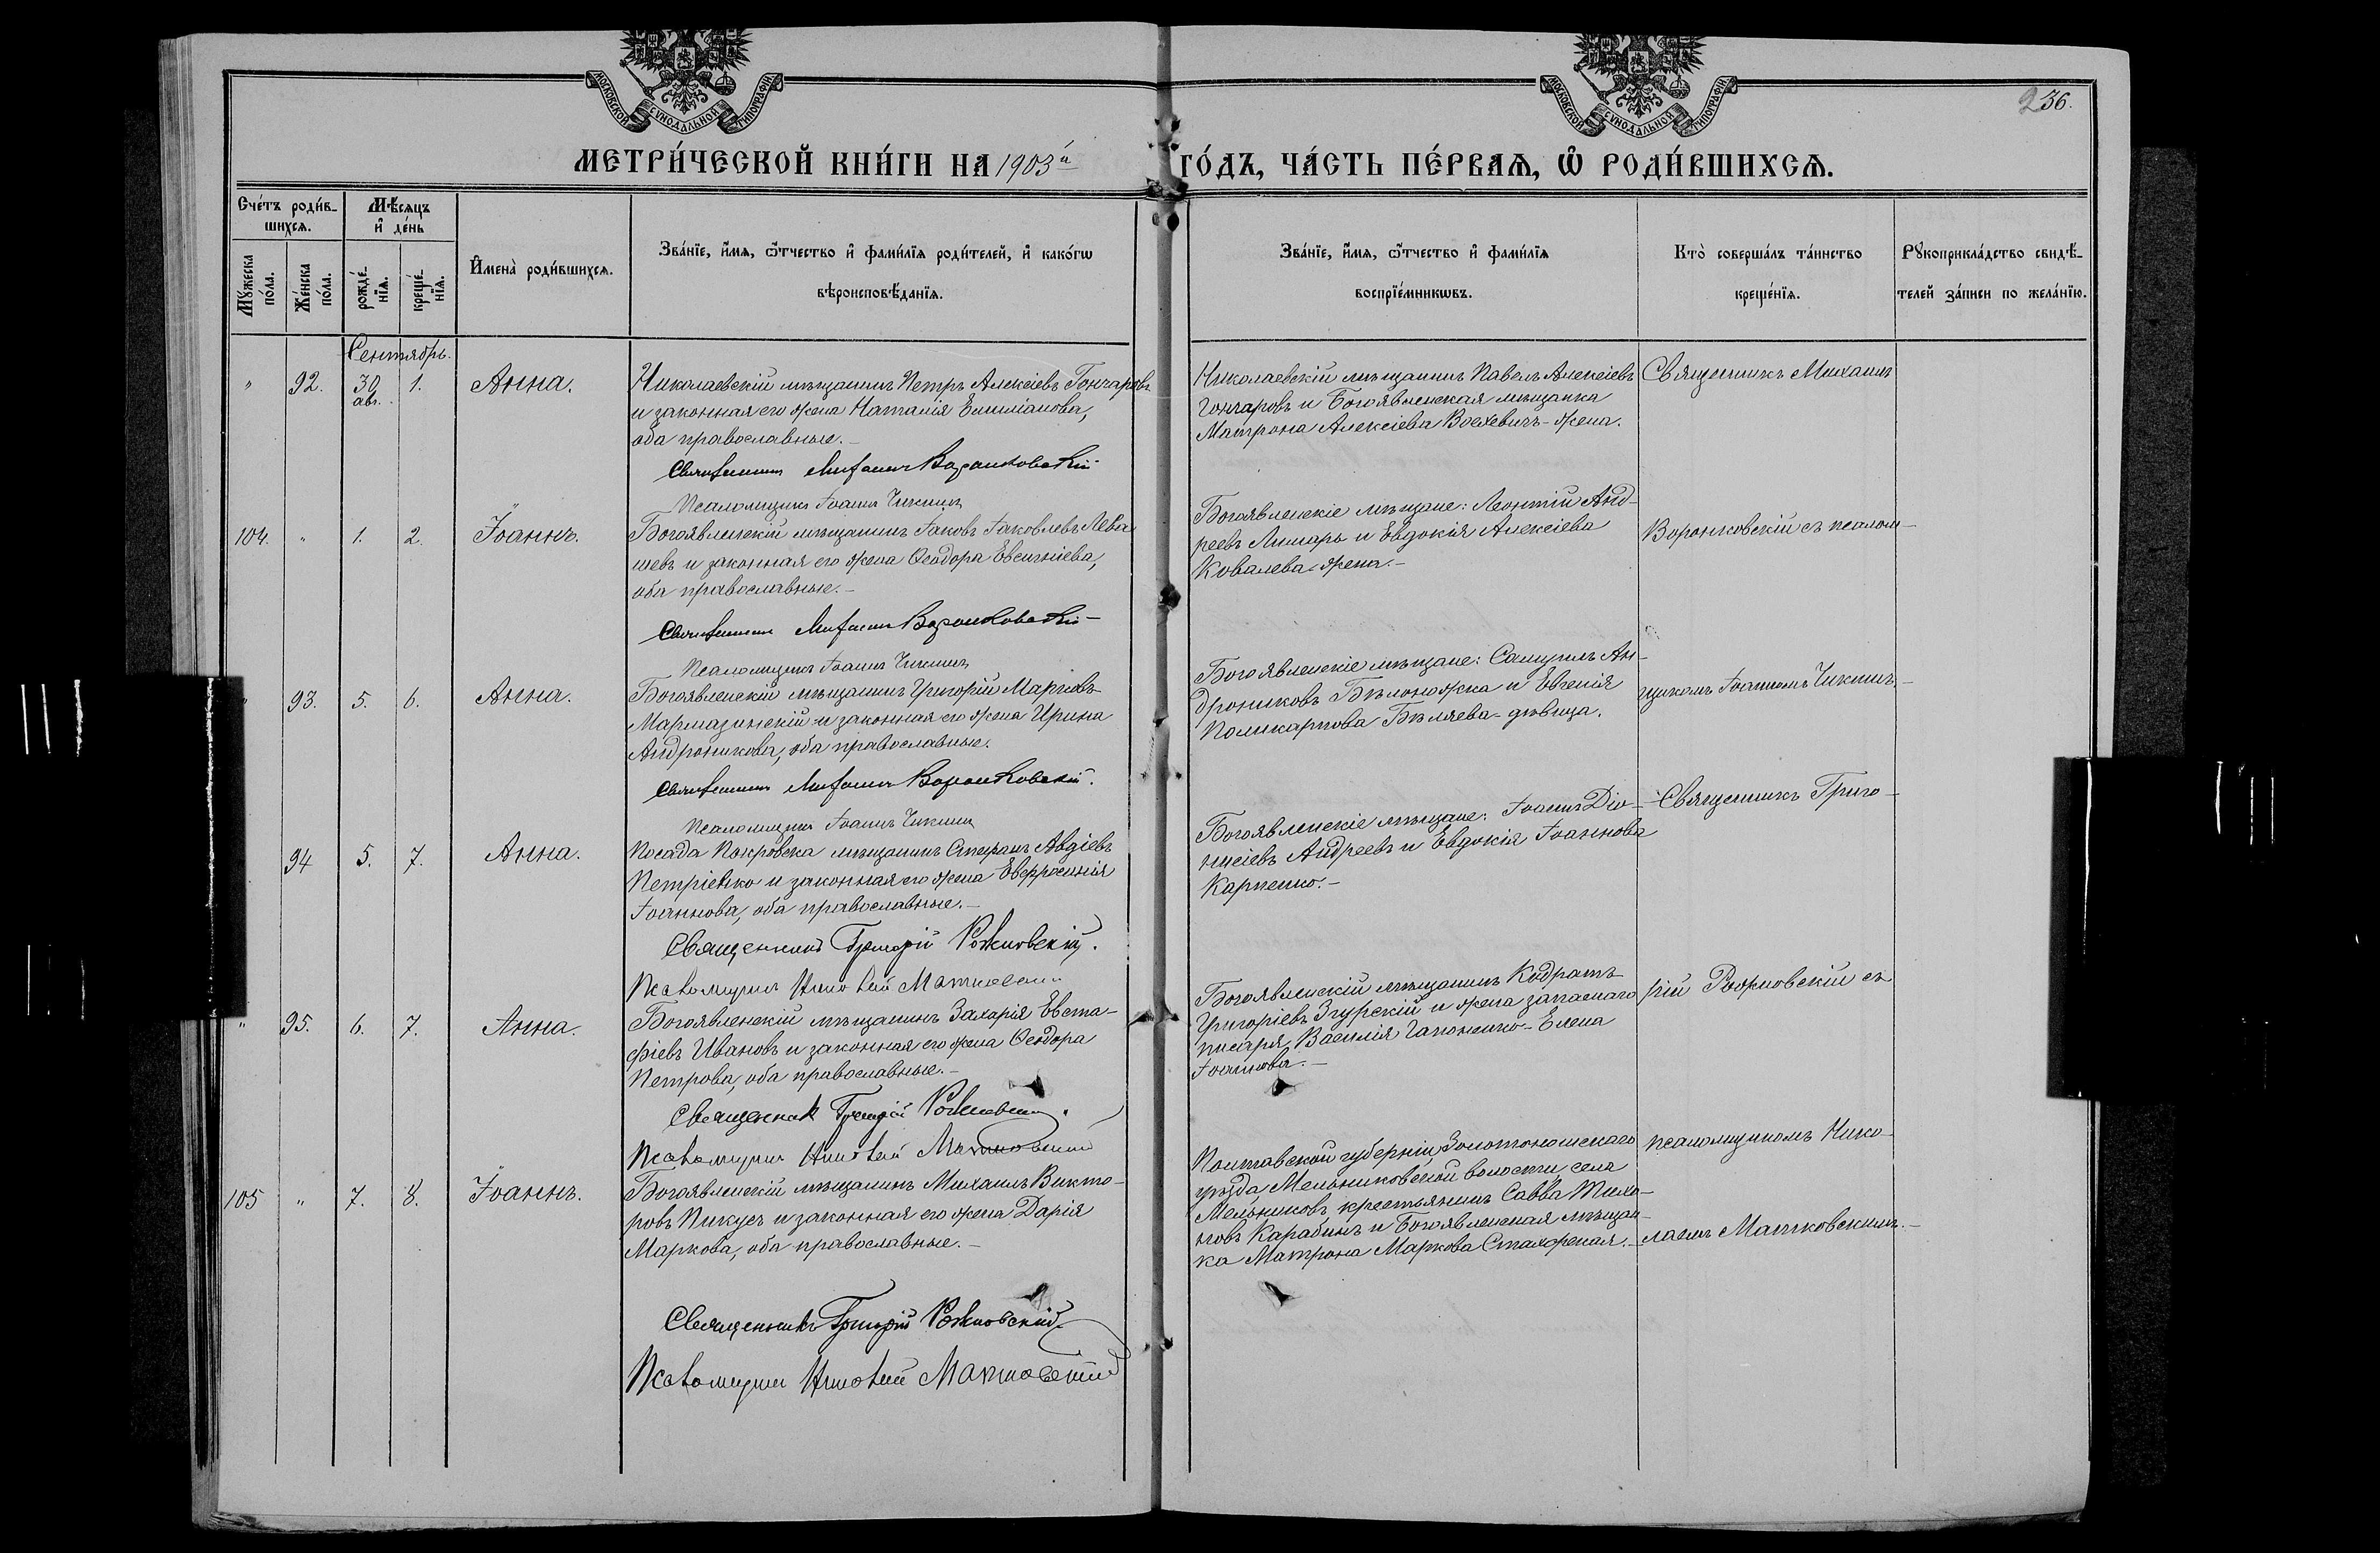 МОСКОВСКОЙ СѴНОДАЛЬНОЙ ТИПОГРАФІИ
МОСКОВСКОЙ СѴНОДАЛЬНОЙ ТИПОГРАФІИ
236.
МЕТРИ́ЧЕСКОЙ КНИ́ГИ НА 1903й
ГО́ДЪ, ЧА́СТЬ ПЕ́РВАѦ, Ѡ РОДИ́ВШИХСѦ.
Сче́тъ роди́в-
шихсѧ.
Мꙋ́жеска по́ла.
Же́нска по́ла.
Мѣ́сяцъ
и҆ де́нь
рожде́-нїѧ.
креще́-нїѧ.
И҆мена̀ роди́вшихсѧ.
Зва́нїе, и҆́мѧ, ѻ҆́тчество и҆ фами́лїѧ роди́телей, и҆ како́гѡ
вѣроисповѣ́данїѧ.
Зва́нїе, и҆́мѧ, ѻ҆́тчество и҆ фами́лїѧ
воспрїе́мникѡвъ.
Кто̀ соверша́лъ та́инство
креще́нїѧ.
Рꙋкоприкла́дство свидѣ́-
телей за́писи по жела́нїю.
Сентябрь.
" 92. 30 авг. 1. Анна.
Николаевскій мѣщанинъ Петръ Алексіевъ Гончаровъ
и законная его жена Наталія Емиліанова,
оба православные.-
Священникъ Михаилъ Воронковскій
Псаломщикъ Іоаннъ Чикинъ
Николаевскій мѣщанинъ Павелъ Алексіевъ
Гончаровъ и Богоявленская мѣщанка
Матрона Алексіева - жена.
Священникъ Михаилъ
104. " 1. 2. Іоаннъ.
Богоявленскій мѣщанинъ Іаковъ Іаковлевъ Лева-
шевъ и законная его жена Ѳеодора Евсигніева,
оба православные.-
Священникъ Михаилъ Воронковскій
Псаломщикъ Іоаннъ Чикинъ
Богоявленскіе мѣщане: Леонтій Анд-
реевъ Лимарь и Евдокія Алексіева
Ковалева-жена.-
Воронковскій съ псалом-
" 93. 5. 6. Анна.
Богоявленскій мѣщанинъ Григорій Марковъ
Мармазинскій и законная его жена Ирина
Андроникова, оба православные.
Священникъ Михаилъ Воронковскій.
Псаломщикъ Іоаннъ Чикинъ
Богоявленскіе мѣщане: Самуилъ Ан-
дрониковъ Бѣлоножка и Евгенія
Поликарпова Бѣляева-дѣвица.
щикомъ Іоанномъ Чикинъ.-
94 5. 7. Анна.
Посада Покровска мѣщанинъ Стефанъ Авдіевъ
Петріенко и законная его жена Евфросинія
Іоаннова, оба православные.-
Священникъ Григорій Рожновскій.
Псаломщикъ Николай Матковскій
Богоявленскіе мѣщане: Іоаннъ Діо-
нисіевъ Андреевъ и Евдокія Іоаннова
Карпенко.-
Священникъ Григо-
" 95. 6. 7. Анна.
Богоявленскій мѣщанинъ Захарія Евста-
фіевъ Ивановъ и законная его жена Ѳеодора
Петрова, оба православные.-
Священникъ Григорій Рожновскій.
Псаломщикъ Николай Матковскій
Богоявленскій мѣщанинъ Кодратъ
Григоріевъ Згурскій и жена запаснаго
писаря Василія Гапоненко-Елена
Іоаннова.-
рій Рожновскій съ
105 " 7. 8. Іоаннъ.
Богоявленскій мѣщанинъ Михаилъ Викто-
ровъ Пикусъ и законная его жена Дарія
Маркова, оба православные.-
Священникъ Григорій Рожновскій
Псаломщикъ Николай Матковскій
Полтавской губерніи, Золотоношскаго
уѣзда, Мельниковской волости, села
Мельниковъ крестьянинъ Савва Тихо-
новъ Карабинъ и Богоявленская мѣщан-
ка Матрона Маркова.-
псаломщикомъ Нико-
лаемъ Матковскимъ.-